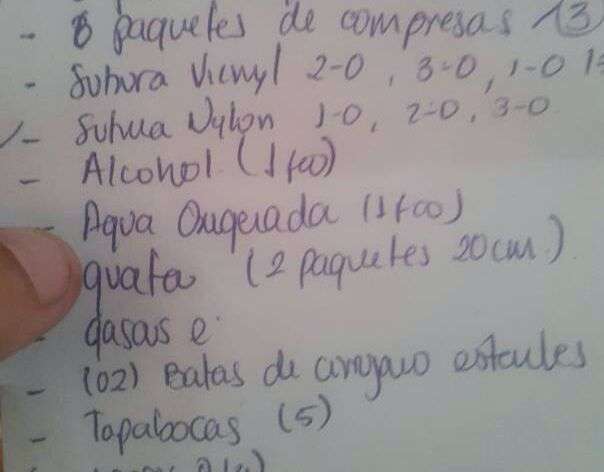 - 8 paquetes de compresas 13
- Sutura Vicnyl 2-0, 3-0, 1-0
- Sutua Nylon 1-0, 2-0, 3-0
- Alcohol (1 fco)
- Agua Oxigenada (1 fco)
guata (2 paquetes 20cm.)
- gasas e
- (02) Batas de cirujano esteriles
- Tapabocas (5)